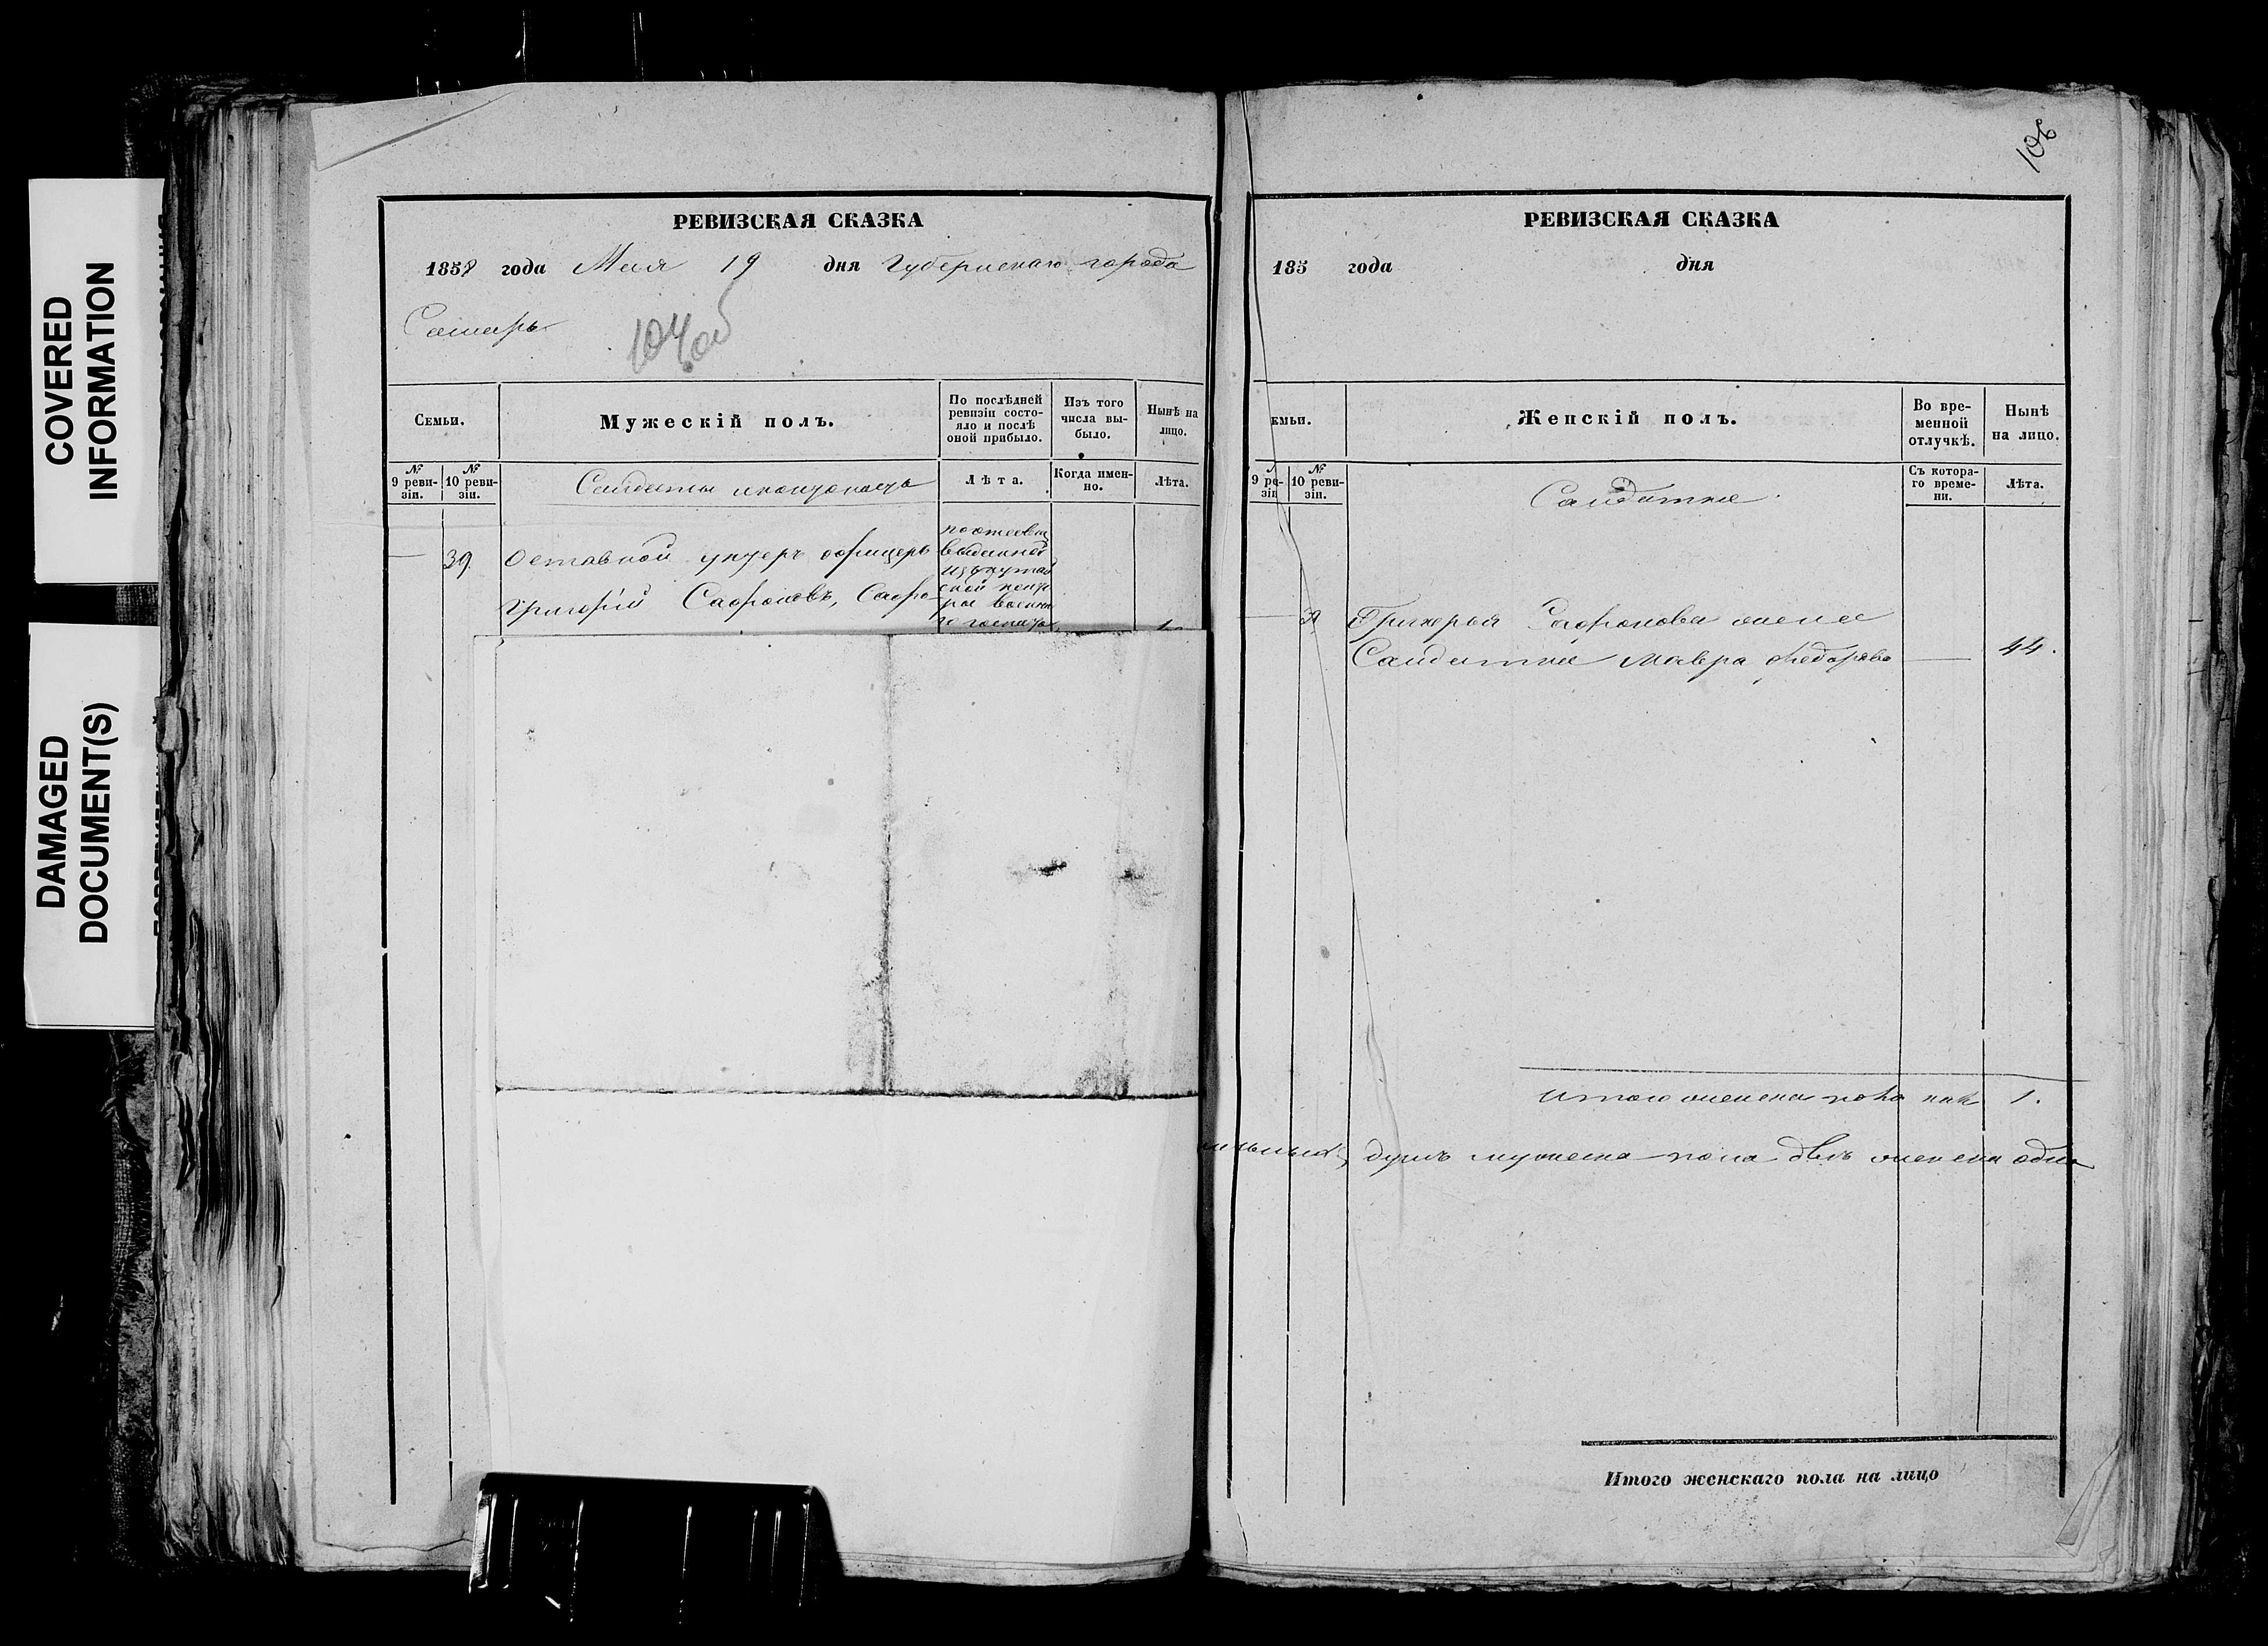 COVERED
INFORMATION
DAMAGED
DOCUMENT(S)
РЕВИЗСКАЯ СКАЗКА
1858 года Мая 19 дня Губернскаго города
Самары
104 об
Семьи.
Мужескій полъ.
По послѣдней
ревизіи состо-
яло и послѣ
оной прибыло.
Изъ того
числа вы-
было.
Нынѣ на
лицо.
№
9 реви-
зіи.
№
10 реви-
зіи.
Солдаты и кантонисты
Лѣта.
Когда имен-
но.
Лѣта.
39 Отставной унтеръ офицеръ
Григорій Сафроновъ, Сафро-
выданной
РЕВИЗСКАЯ СКАЗКА
185 года дня
емьи.
Женскій полъ.
Во вре-
менной
отлучкѣ.
Нынѣ
на лицо.
9 ре-
зіи
№
10 реви-
зіи.
Солдатки
Съ котора-
го време-
ни.
Лѣта.
39 Григорья Сафронова жена
Солдатка Мавра Федорова 44.
Итого женска пола 1.
душъ мужеска пола двѣ женска одна
Итого женскаго пола на лицо